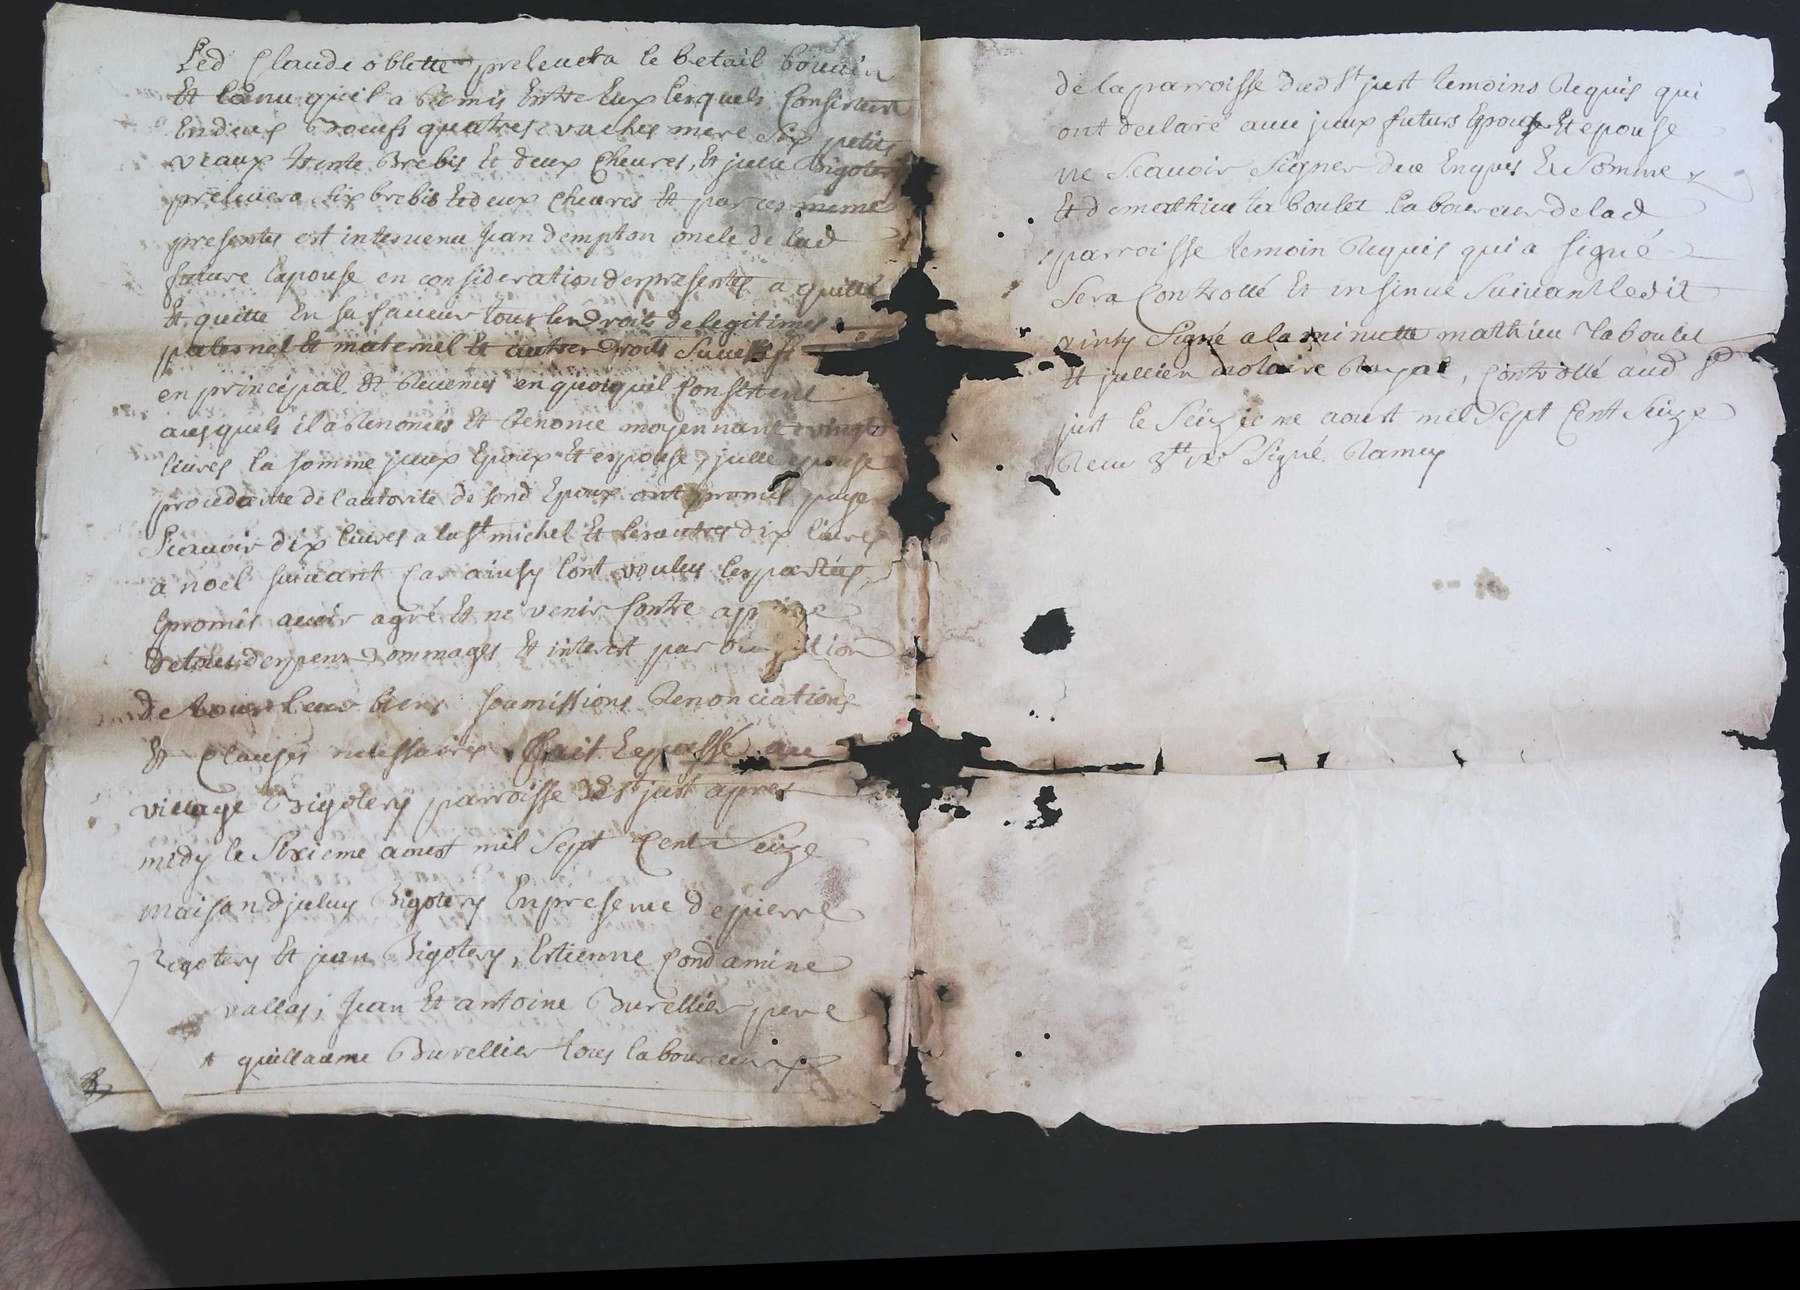 Led Claude oblette prelevera le betail bouuin
Et lanu quil a Remis Entre Eux lesquels Consistent
Endeux Boeufs quatres vaches mere Six petits
veaux trente Brebis Et deux Cheures, Et julie Bigotery
prelevera six brebis Et deux Cheures Et par ces meme
presentes est intervenu Jean dempton oncle de lad
future Espouse en consideration des presentes a quitté
Et quitte En sa faveur tous les Droits de legitimes
paternel Et maternel Et autres Droits Successifs
en principal Et Revenus en quoy quil Consistent
ausquels il a Renoncés Et Renonce moyennant vingt
livres la somme jceux Epoux Et espouse, jcelle epouse
procedante de lautorité de sond Epoux ont promis payer
Scauoir dix liures a la St michel Et les autres dix liures
a noel suivant Car ainsy lont voulus les parties
Promis auoir agré Et ne venir Contre a peine
de tous despens Dommages Et interest par
de tous leurs biens soumissions Renonciations
Et Clauses nessaires Fait Et passé au
village Bigotery parroisse de St just apres
midy le Sixieme aoust mil Sept Cent Seize
maison djuluy Bigotery En presence de pierre
Bigotery Et jean Bigotery, Estienne Condamine
vallas, Jean Et antoine Burellier pere
guillaume Burellier tous laboureurs
de la parroisse dud St just temoins Requis qui
ont declaré avec jceux futurs Epoux Et epouse
ne Scauoir Signer de ce Enquis Et Sommes
Et de mathieu taboulet laboureur de lad
parroisse temoin Requis qui a signé
Sera Controllé Et insinué Suivant ledit
ainsy Signé a la minutte mathieu taboulet
Et jullien notaire Royal, Controllé aud St
just le Seizieme aoust mil Sept Cent Seize
Receu Signé Ramey